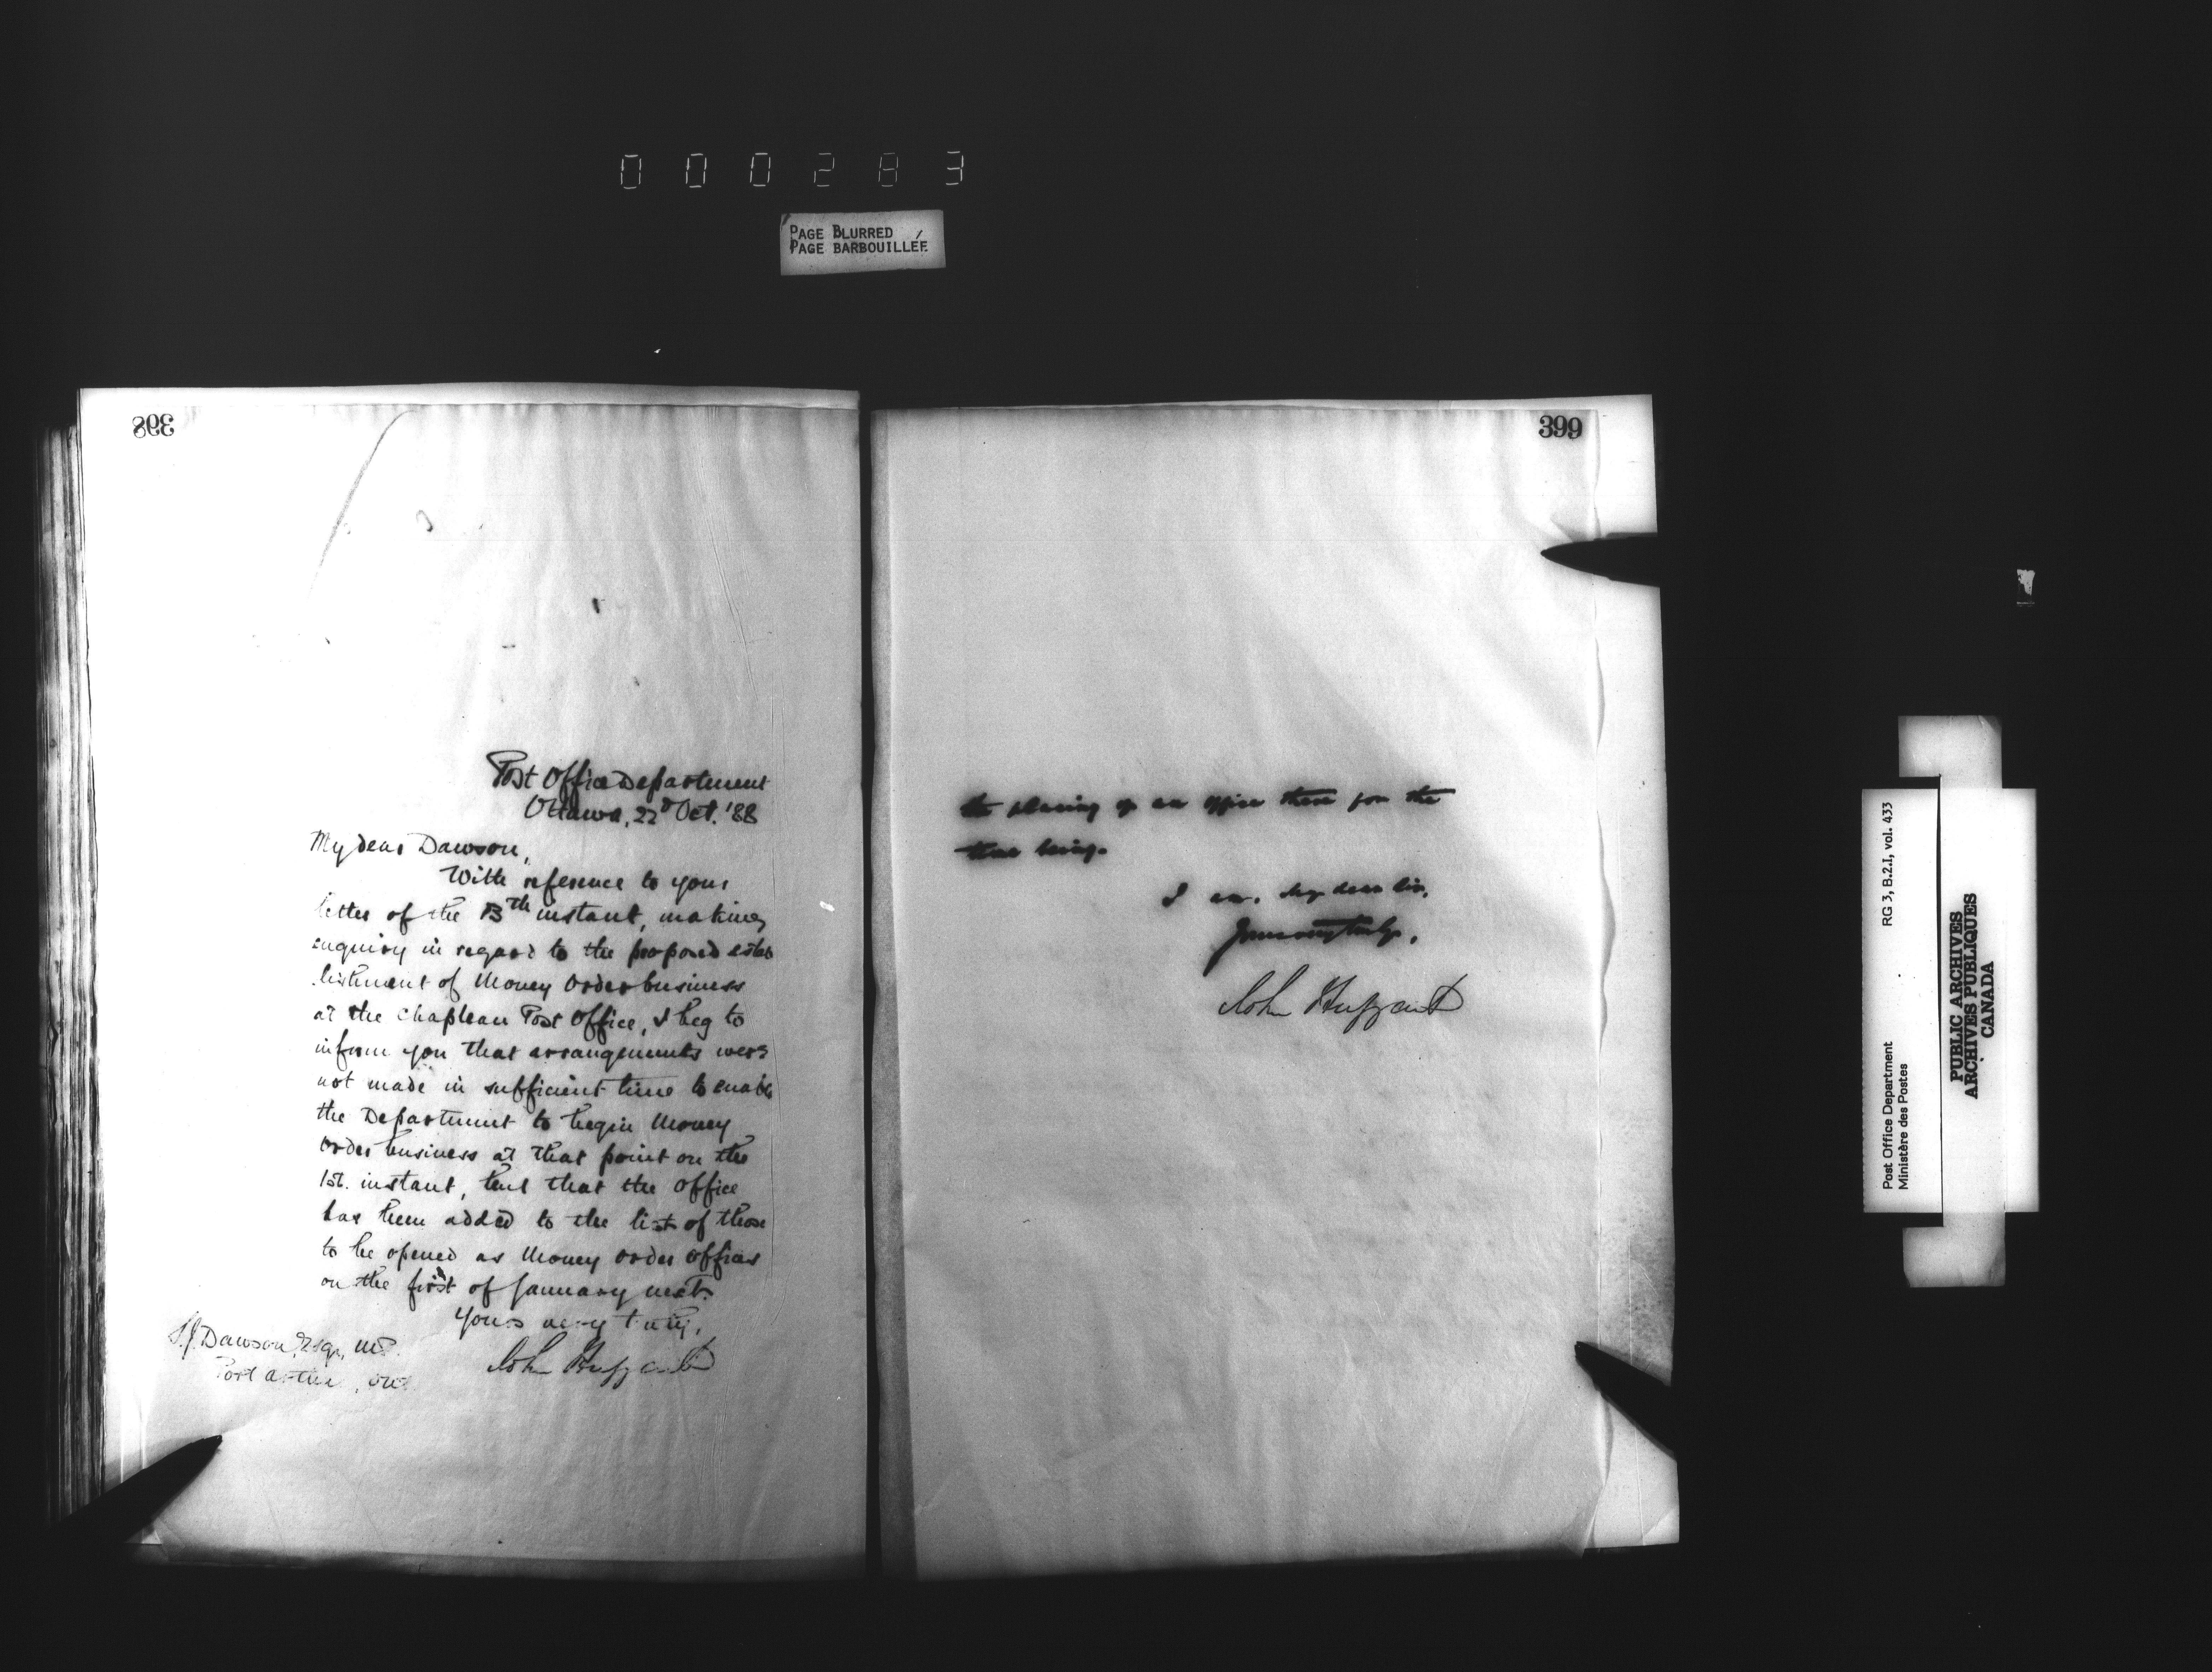 000283
PAGE BLURRED
PAGE BARBOUILLÉE
398
Post Office Department
Ottawa, 22d Oct. '88
My dear Dawson,
With reference to your
letter of the 13th instant, making
enquiry in regard to the proposed estab
lishment of Money Order business
at the Chapleau Post Office, I beg to
inform you that arrangements were
not made in sufficient time to enable
the Department to begin Money
Order business at that point on the
1st. instant, but that the Office
has been added to the list of those
to be opened as Money Order Offices
on the first of January next.
Yours very truly,
John Haggart
S.J. Dawson, Esqr, M.P.
Port Arthur, Ont.
399
the placing of an Office there for the
time being.
I am, My dear Sir,
Yours very truly,
John Haggart
Post Office Department
Ministère des Postes
RG 3, B.2.I, vol. 433
PUBLIC ARCHIVES
ARCHIVES PUBLIQUES
CANADA